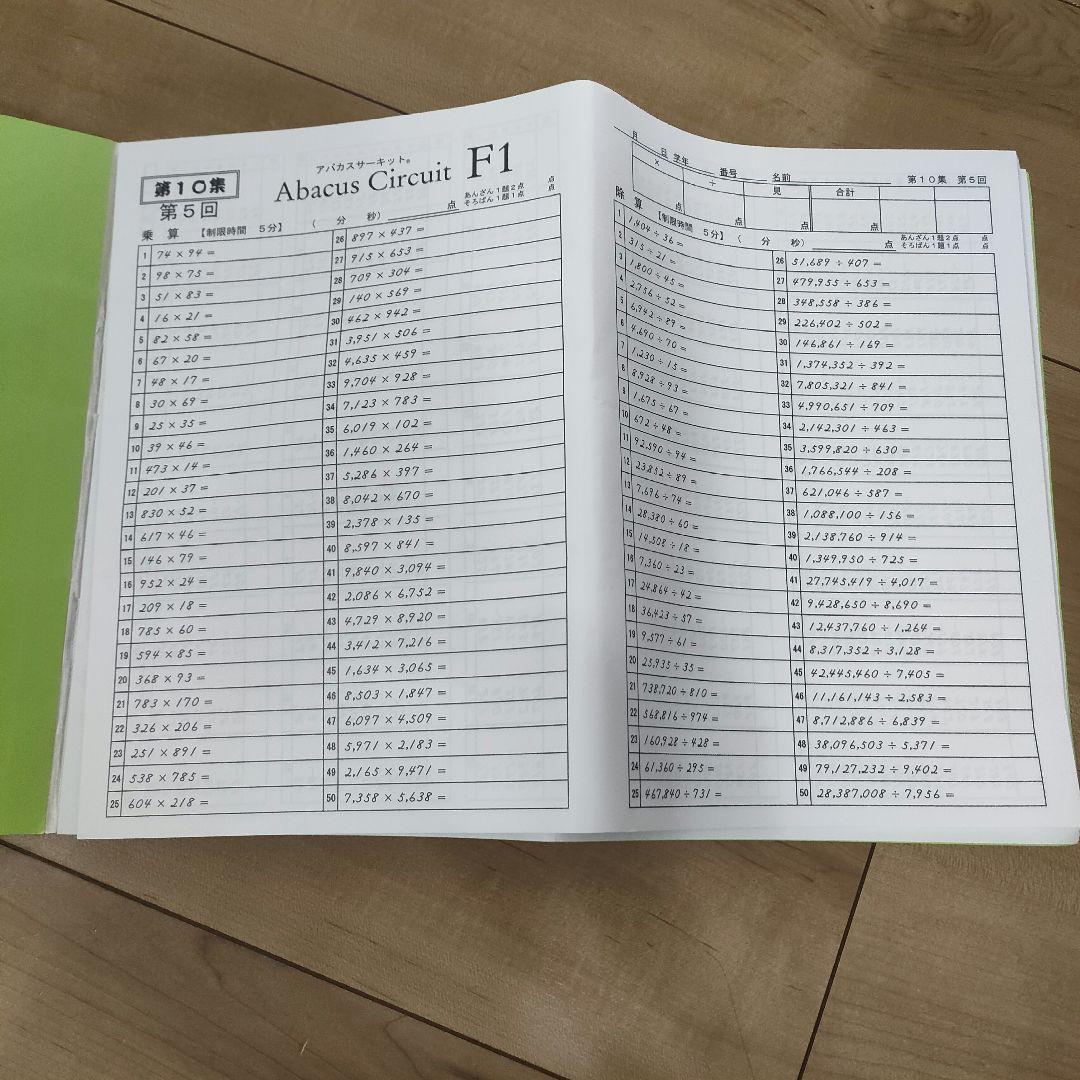 第10集
第5回
アバカスサーキット®
Abacus Circuit F1
あんざん1題2点 点
そろばん1題1点 点
乗 算 【制限時間 5分】 ( 分 秒) 点
1 74 × 94 =
2 98 × 75 =
3 51 × 83 =
4 16 × 21 =
5 82 × 58 =
6 67 × 20 =
7 48 × 17 =
8 30 × 69 =
9 25 × 35 =
10 39 × 46 =
11 473 × 14 =
12 201 × 37 =
13 830 × 52 =
14 617 × 46 =
15 146 × 79 =
16 952 × 24 =
17 209 × 18 =
18 785 × 60 =
19 594 × 85 =
20 368 × 93 =
21 783 × 170 =
22 326 × 206 =
23 251 × 891 =
24 538 × 785 =
25 604 × 218 =
26 897 × 437 =
27 915 × 653 =
28 709 × 304 =
29 140 × 569 =
30 462 × 942 =
31 3,951 × 506 =
32 4,635 × 459 =
33 9,704 × 928 =
34 7,123 × 783 =
35 6,019 × 102 =
36 1,460 × 264 =
37 5,286 × 397 =
38 8,042 × 670 =
39 2,378 × 135 =
40 8,597 × 841 =
41 9,840 × 3,094 =
42 2,086 × 6,752 =
43 4,729 × 8,920 =
44 3,412 × 7,216 =
45 1,634 × 3,065 =
46 8,503 × 1,847 =
47 6,097 × 4,509 =
48 5,971 × 2,183 =
49 2,165 × 9,471 =
50 7,358 × 5,638 =
月 日 学年 番号 名前 第10集 第5回
× ÷ 見 合計
点 点 点 点
あんざん1題2点 点
そろばん1題1点 点
除 算 【制限時間 5分】 ( 分 秒) 点
1 1,404 ÷ 36 =
2 315 ÷ 21 =
3 1,800 ÷ 45 =
4 2,756 ÷ 52 =
5 6,942 ÷ 89 =
6 4,690 ÷ 70 =
7 1,230 ÷ 15 =
8 8,928 ÷ 93 =
9 1,675 ÷ 67 =
10 672 ÷ 48 =
11 92,590 ÷ 94 =
12 23,852 ÷ 89 =
13 7,696 ÷ 74 =
14 28,380 ÷ 60 =
15 14,508 ÷ 18 =
16 7,360 ÷ 23 =
17 24,864 ÷ 42 =
18 36,423 ÷ 57 =
19 9,577 ÷ 61 =
20 25,935 ÷ 35 =
21 738,720 ÷ 810 =
22 568,816 ÷ 974 =
23 160,928 ÷ 428 =
24 61,360 ÷ 295 =
25 467,840 ÷ 731 =
26 51,689 ÷ 407 =
27 479,955 ÷ 653 =
28 348,558 ÷ 386 =
29 226,402 ÷ 502 =
30 146,861 ÷ 169 =
31 1,374,352 ÷ 392 =
32 7,805,321 ÷ 841 =
33 4,990,651 ÷ 709 =
34 2,142,301 ÷ 463 =
35 3,599,820 ÷ 630 =
36 1,766,544 ÷ 208 =
37 621,046 ÷ 587 =
38 1,088,100 ÷ 156 =
39 2,138,760 ÷ 914 =
40 1,349,950 ÷ 725 =
41 27,745,419 ÷ 4,017 =
42 9,428,650 ÷ 8,690 =
43 12,437,760 ÷ 1,264 =
44 8,317,352 ÷ 3,128 =
45 42,445,460 ÷ 7,405 =
46 11,161,143 ÷ 2,583 =
47 8,712,886 ÷ 6,839 =
48 38,096,503 ÷ 5,371 =
49 79,127,232 ÷ 9,402 =
50 28,387,008 ÷ 7,956 =